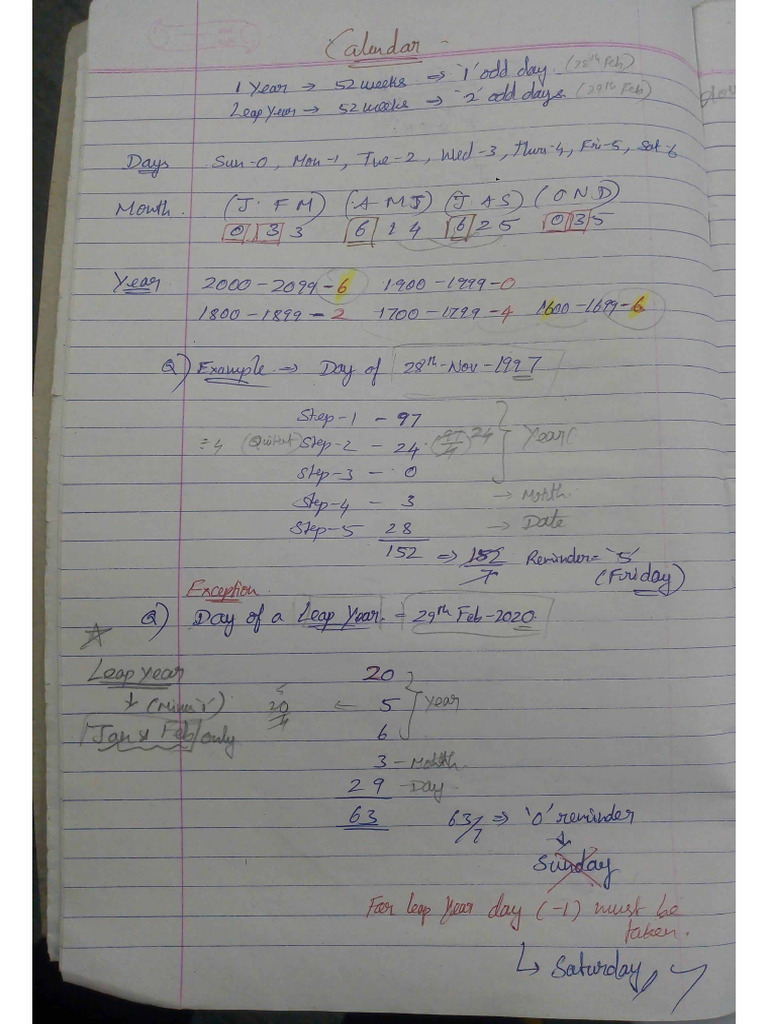 Calendar -
1 Year → 52 weeks ⇒ '1' odd day (28th Feb)
Leap Year → 52 weeks → '2' odd days (29th Feb)
Days Sun-0, Mon-1, Tue-2, Wed-3, Thurs-4, Fri-5, Sat-6
Month. (J. F M) (A M J) (J A S) (O N D)
0 3 3 6 1 4 6 2 5 0 3 5
Year 2000-2099-6 1900-1999-0
1800-1899-2 1700-1799-4 1600-1699-6
Q) Example → Day of 28th-Nov-1997
Step-1 - 97
÷4 Step-2 - 24 (97/4) 24 Year
Step-3 - 0
Step-4 - 3 → Month
Step-5 28 → Date
152 ⇒ 152/7 Reminder = '5'
(Friday)
Exception
Q) Day of a Leap Year. = 29th Feb-2020.
Leap year 20
↓ (Minus 1) 5 20/4 ← 5 Year
Jan & Feb only 6
3 - Month
29 - Day
63 63/7 ⇒ '0' reminder
↓
Sunday
For leap year day (-1) must be
taken.
↳ Saturday